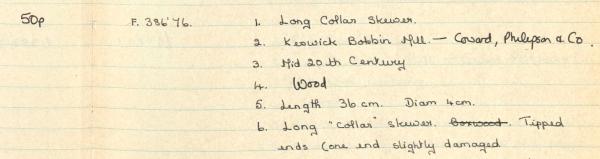 50p F. 336'76. 1. Long Collar Skewer.
2. Keswick Bobbin Mill. — Coward, Philipson & Co.
3. Mid 20th Century
4. Wood
5. Length 36 cm. Diam 4cm.
6. Long "collar" skewer. Boxwood. Tipped
ends (one end slightly damaged